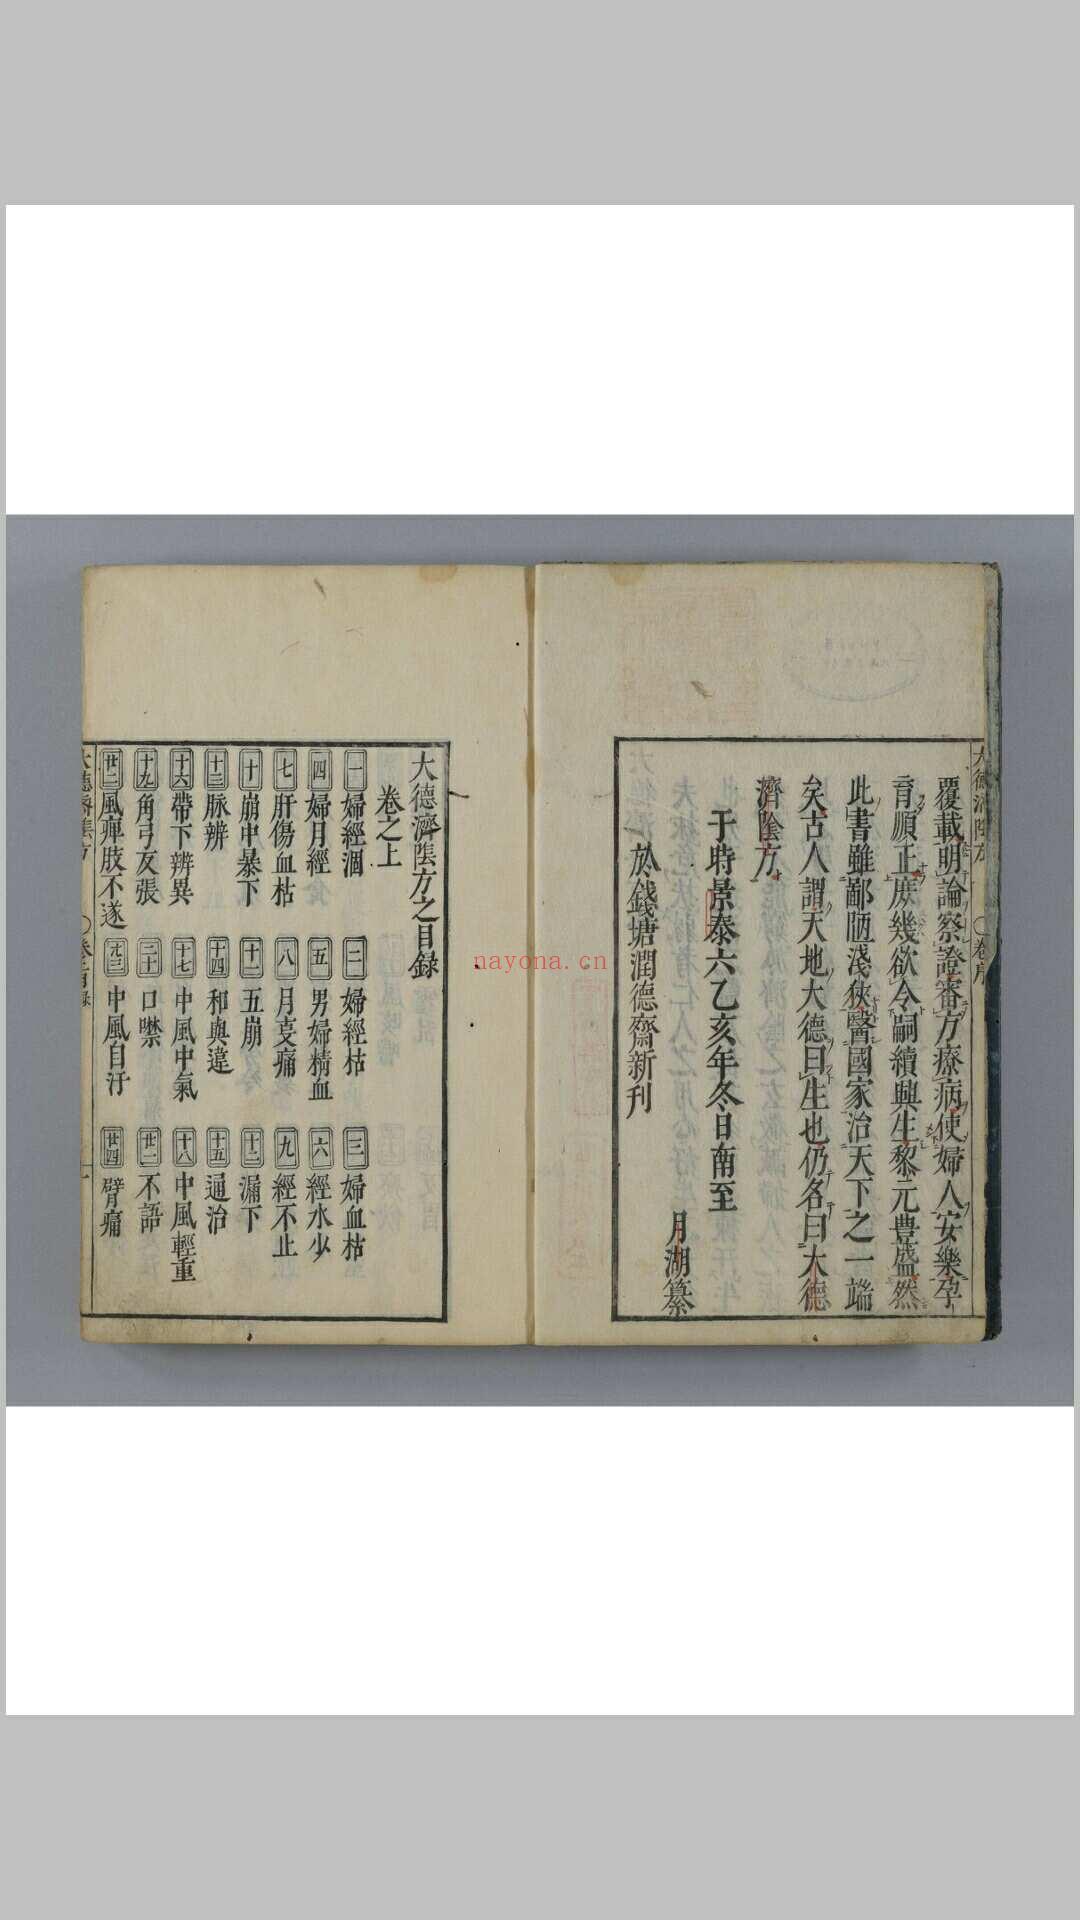 大德濟陰方
卷序
覆載明論察證審方療病使婦人安樂孕
育順正庶幾欲令嗣續興生黎元豊盛然
此書雖鄙陋淺狹醫國家治天下之一端
矣古人謂天地大德曰生也仍名曰大德
濟陰方
于時景泰六乙亥年冬日南至
月湖纂
於錢塘潤德齋新刊
大德濟陰方之目錄
卷之上
一 婦經涸 二 婦經枯 三 婦血枯
四 婦月經 五 男婦精血 六 經水少
七 肝傷血枯 八 月戔痛 九 經不止
十 崩中暴下 十一 五崩 十二 漏下
十三 脉辨 十四 和與違 十五 通治
十六 帶下辨異 十七 中風中氣 十八 中風輕重
十九 角弓反張 二十 口噤 廿一 不語
廿二 風痺肢不遂 廿三 中風自汗 廿四 臂痛
nayona.cn